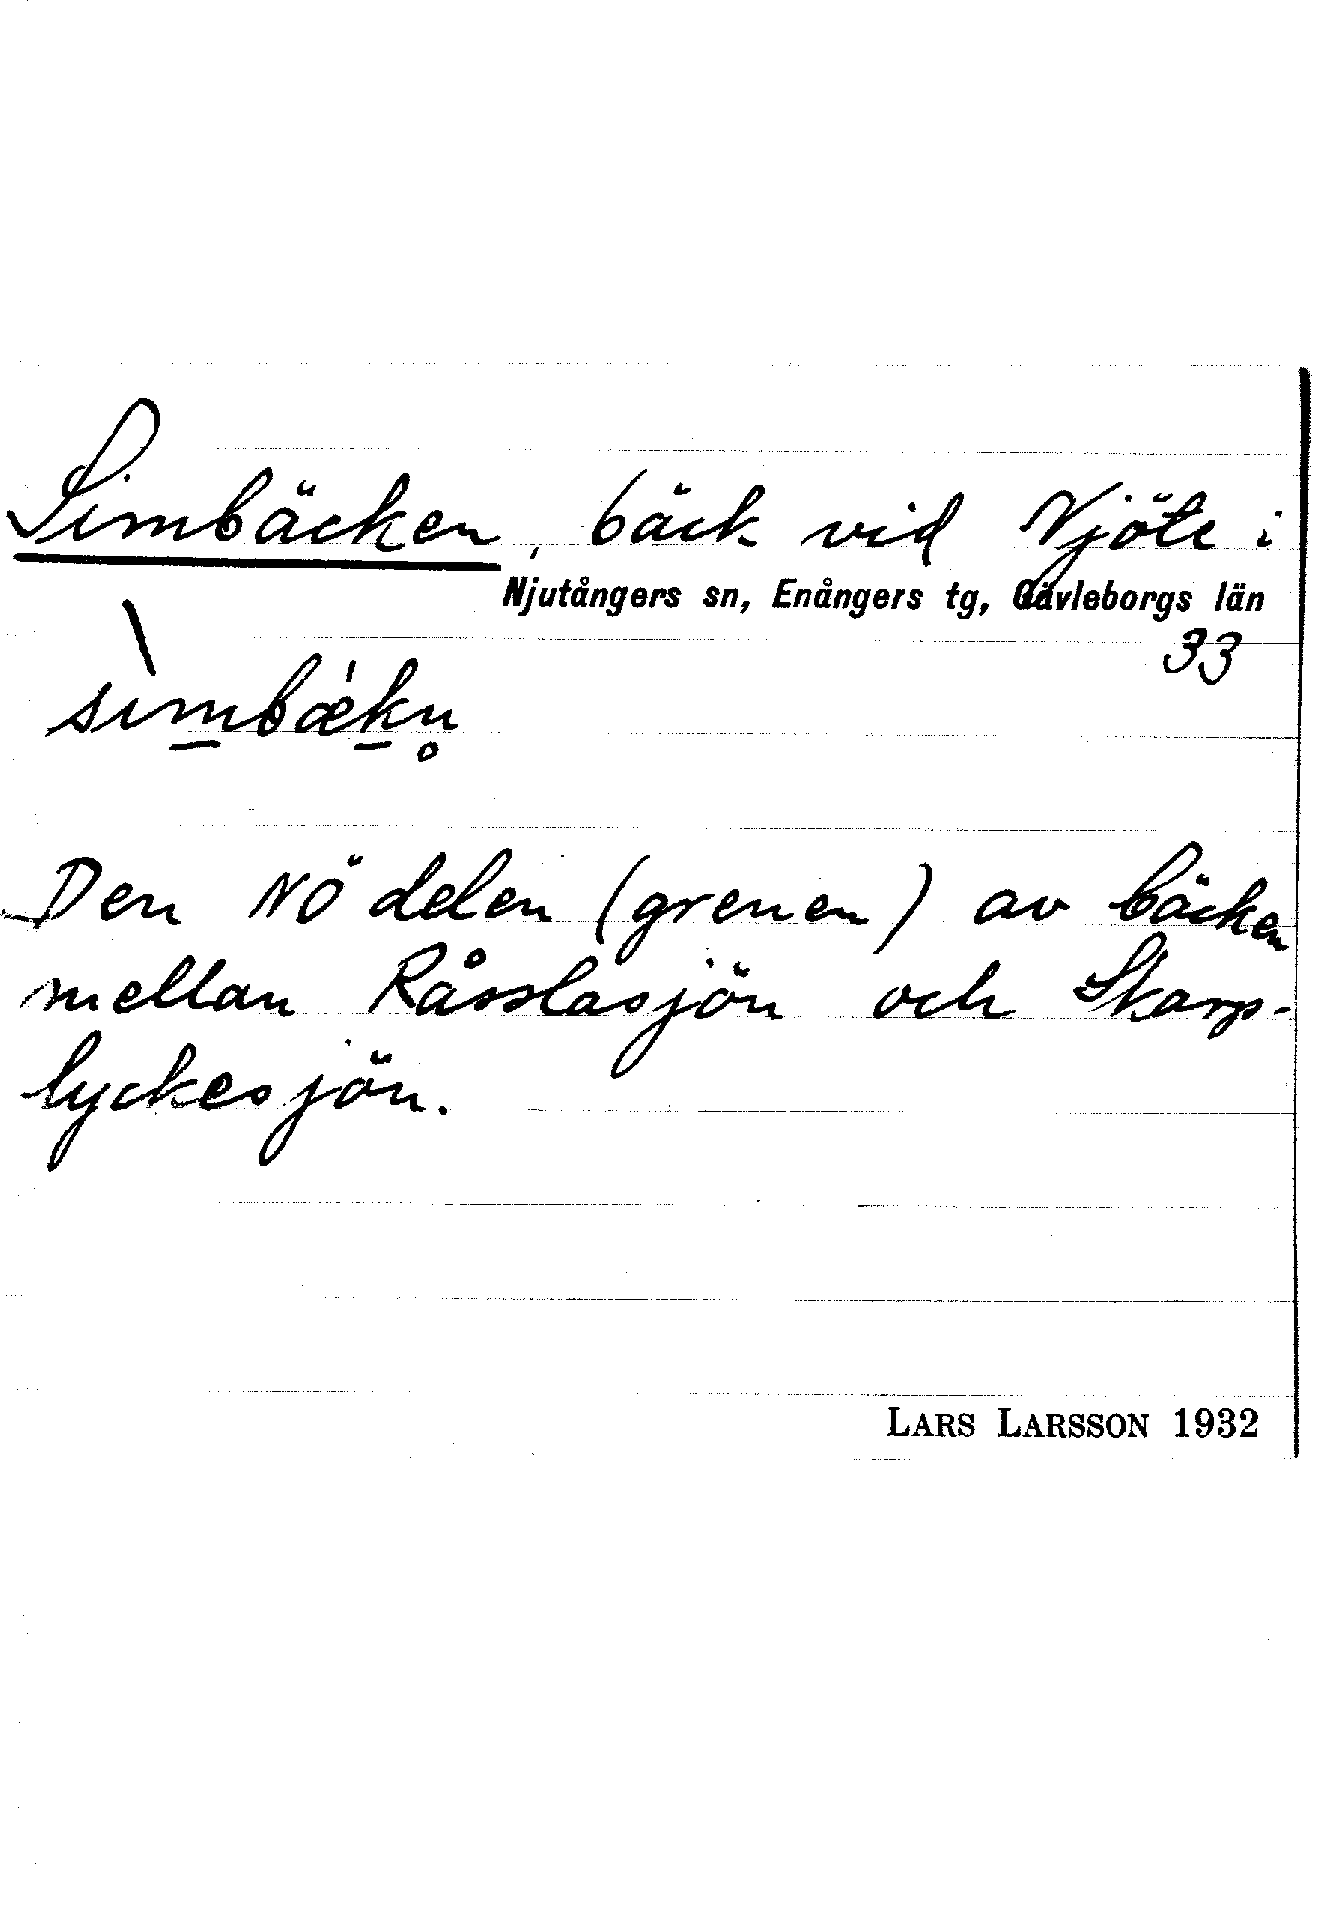 Simbäcken, bäck vid Njöte i
Njutångers sn, Enångers tg, Gävleborgs län
33
\
sìmbǽkn̥
Den NÖ delen (grenen) av bäcken
mellan Råsslasjön och Skarp-
lyckesjön.
LARS LARSSON 1932